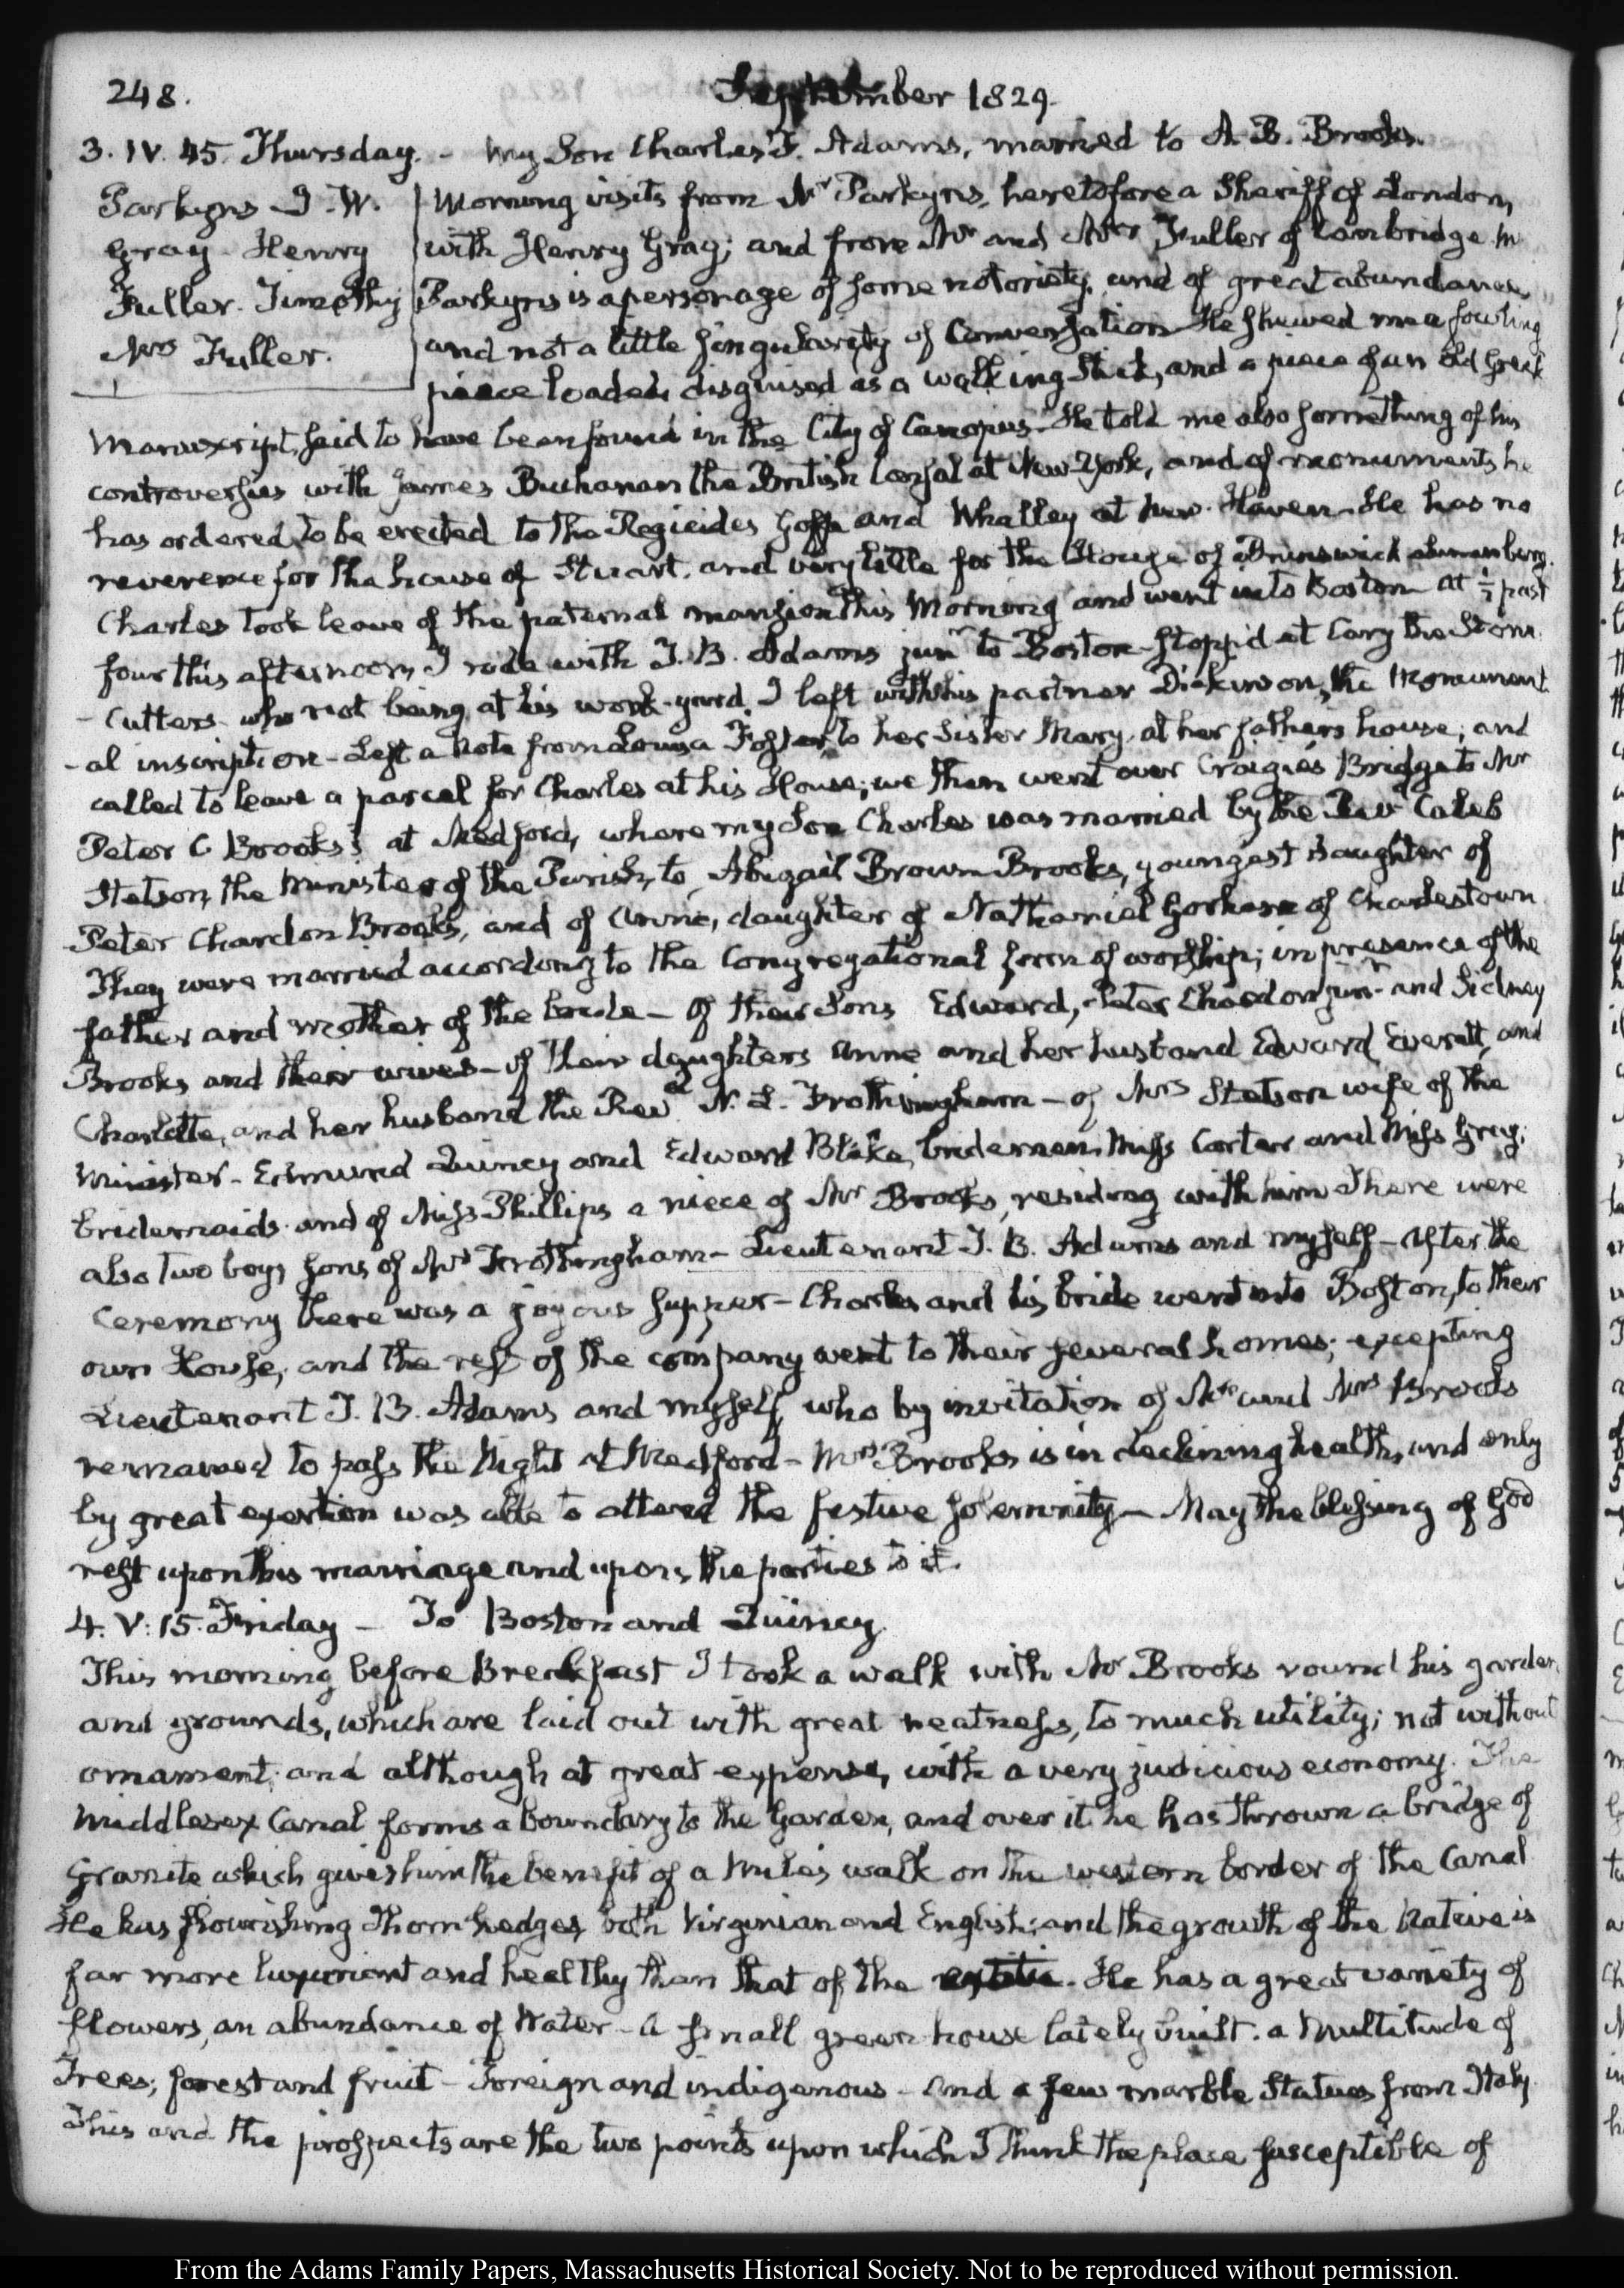 248.
September 1829.
3. IV. 45. Thursday. - My Son Charles F. Adams, married to A. B. Brooks.
Parkyns J. W.
Gray Henry
Fuller. Timothy
Mrs Fuller.
Morning visits from Mr Parkyns, heretofore a Sheriff of London,
with Henry Gray; and from Mr and Mrs Fuller of Cambridge. Mr
Parkyns is a personage of some notoriety, and of great abundance
and not a little singularity of Conversation. He shewed me a fowling
piece loaded, disguised as a walking Stick, and a piece of an old Greek
Manuscript, said to have been found in the City of Canopus. He told me also something of his
controversies with James Buchanan the British Consul at New-York, and of monuments he
has ordered to be erected to the Regicides Goffe and Whalley at New-Haven. He has no
reverence for the house of Stuart, and very little for the House of Brunswick
Charles took leave of the paternal mansion this Morning and went into Boston. At ½ past
four this afternoon, I rode with J. B. Adams junr to Boston. Stopp'd at Cary the Stone
-Cutters who not being at his work-yard, I left with his partner Dickinson, the Monument
-al inscription - Left a Note from Louisa Foster, to her Sister Mary, at her father's house; and
called to leave a parcel for Charles at his House; we then went over Craigie's Bridge to Mr
Peter C Brooks's at Medford, where my Son Charles was married by the Revd Caleb
Stetson, the Minister of the Parish, to Abigail Brown Brooks, youngest daughter of
Peter Chardon Brooks, and of Anne, daughter of Nathaniel Gorham of Charlestown.
They were married according to the Congregational form of worship; in presence of the
father and mother of the bride - Of their Sons Edward, Peter Chardon junr and Sidney
Brooks and their wives - of their daughters Anne and her husband Edward Everett, and
Charlotte, and her husband the Revd N. L. Frothingham - of Mrs Stetson wife of the
Minister - Edmund Quincy and Edward Blake, bridemen. Miss Carter and Miss Gray;
bridemaids and of Miss Phillips a niece of Mr Brooks, residing with him. There were
also two boys sons of Mr Frothingham - Lieutenant J. B. Adams and myself - After the
Ceremony there was a joyous supper - Charles and his bride went into Boston, to their
own House, and the rest of the company went to their several homes; excepting
Lieutenant J. B. Adams and myself, who by invitation of Mr and Mrs Brooks
remained to pass the Night at Medford - Mrs Brooks is in declining health, and only
by great exertion was able to attend the festive solemnity - May the blessing of God
rest upon this marriage and upon the parties to it.
4. V: 15. Friday - To Boston and Quincy.
This morning before Breakfast I took a walk with Mr Brooks round his garden
and grounds, which are laid out with great neatness, to much utility; not without
ornament; and although at great expense, with a very judicious economy. The
Middlesex Canal forms a boundary to the Garden, and over it he has thrown a bridge of
Granite which gives him the benefit of a Mile's walk on the western border of the Canal
He has flourishing Thorn hedges both Virginian and English; and the growth of the Native is
far more luxuriant and healthy than that of the exotic. He has a great variety of
flowers, an abundance of Water - A small green house lately built. a Multitude of
Trees; forest and fruit - Foreign and indigenous - and a few marble Statues from Italy.
This and the prospects are the two points upon which I think the place susceptible of
From the Adams Family Papers, Massachusetts Historical Society. Not to be reproduced without permission.